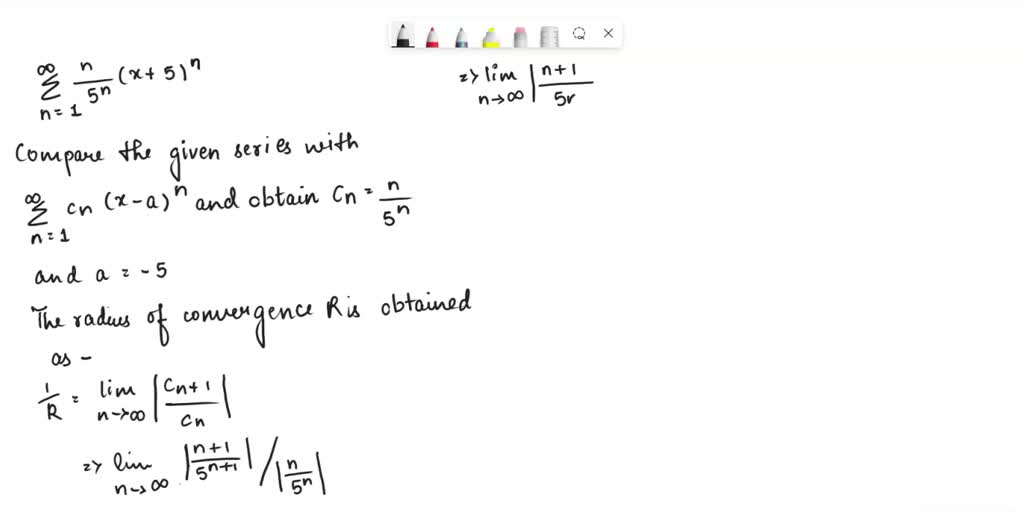 ∞
Σ n/5ⁿ (x+5)ⁿ
n=1
Compare the given series with
∞
Σ cn (x-a)ⁿ and obtain Cn = n/5ⁿ
n=1
and a = -5
The radius of convergence R is obtained
as -
1/R = lim |Cn+1/Cn|
n→∞
=> lim |n+1/5ⁿ⁺¹| / |n/5ⁿ|
n→∞
=> lim |n+1/5r
n→∞